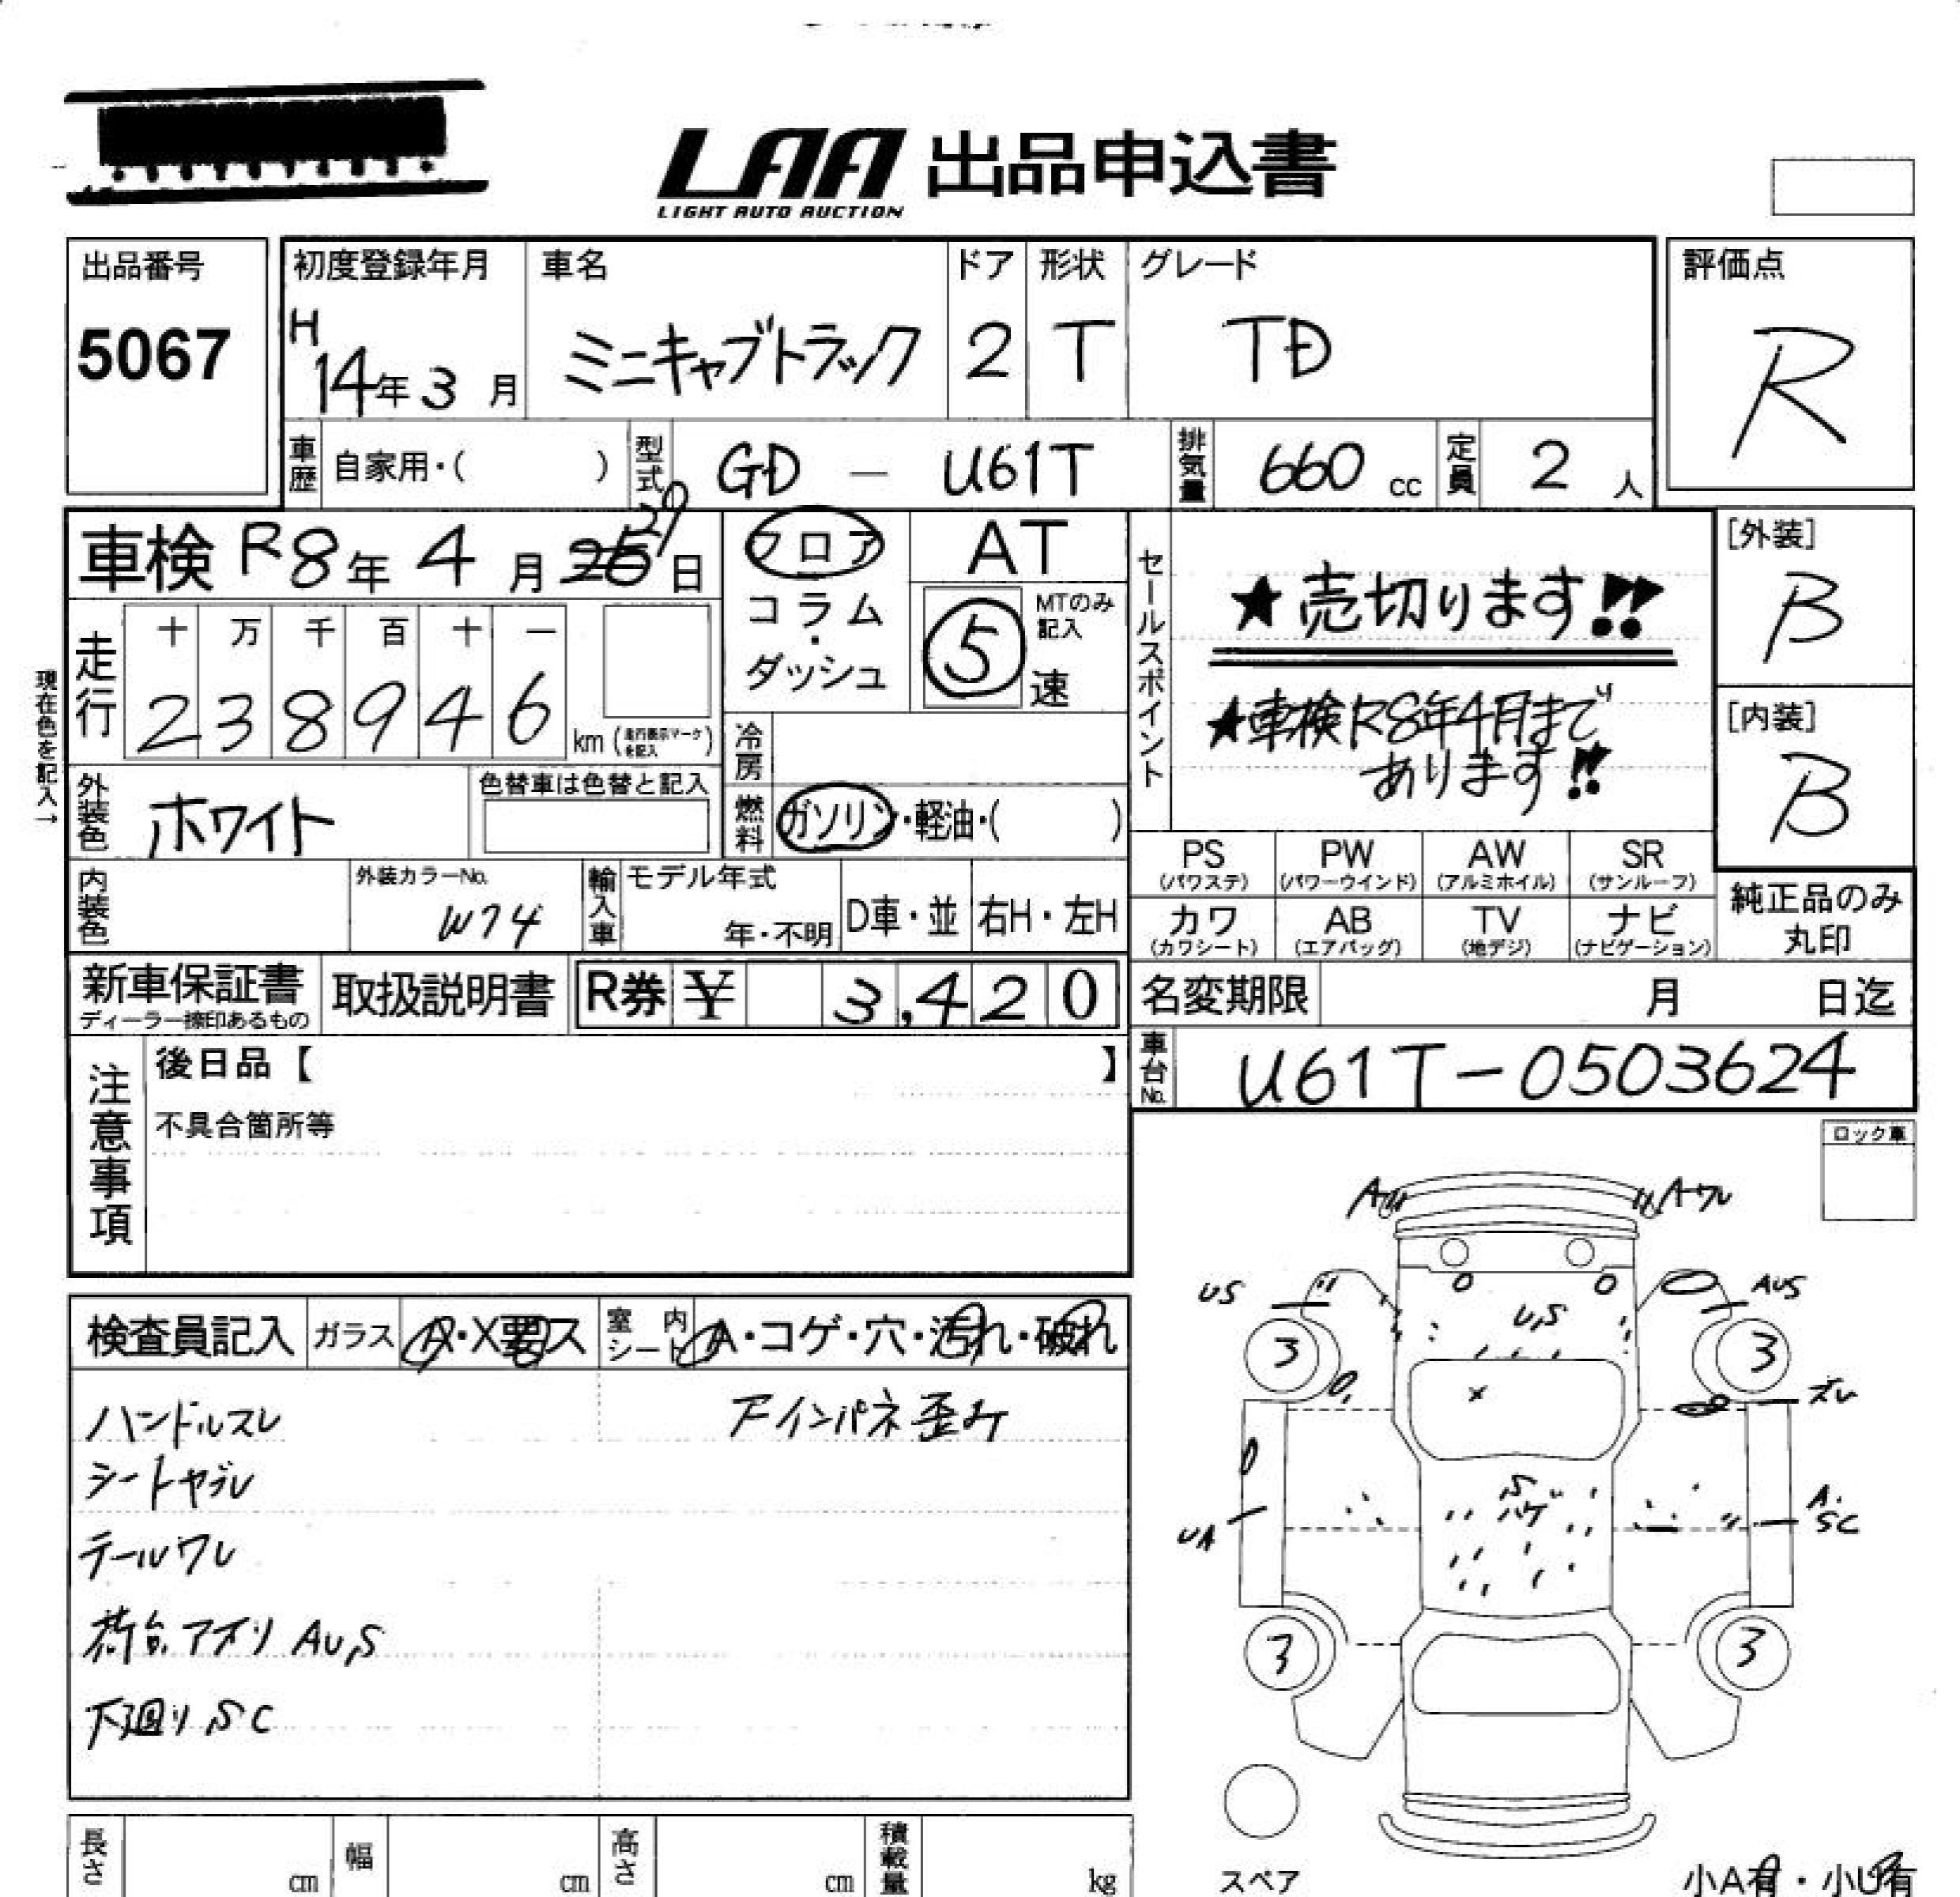 LAA 出品申込書
LIGHT AUTO AUCTION
出品番号
5067
初度登録年月
H
14年3月
車名
ミニキャブトラック
ドア
2
形状
T
グレード
TD
評価点
R
車歴
自家用・( )
型式
GD — U61T
排気量
660 cc
定員
2 人
車検 R8年 4月 29日
フロア
コラム
・
ダッシュ
AT
5
MTのみ
記入
速
セールスポイント
★売切ります!!
★車検R8年4月まで
あります!!
[外装]
B
[内装]
B
現在色を記入→
走行
十 万 千 百 十 一
2 3 8 9 4 6
km (走行表示マークを記入)
冷房
外装色
ホワイト
色替車は色替と記入
燃料
ガソリン・軽油・( )
PS
(パワステ)
PW
(パワーウインド)
AW
(アルミホイル)
SR
(サンルーフ)
カワ
(カワシート)
AB
(エアバッグ)
TV
(地デジ)
ナビ
(ナビゲーション)
純正品のみ
丸印
内装色
外装カラーNo.
W74
輸入車
モデル年式
年・不明
D車・並
右H・左H
新車保証書
ディーラー捺印あるもの
取扱説明書
R券 ¥ 3,420
名変期限 月 日迄
車台No.
U61T-0503624
注意事項
後日品【 】
不具合箇所等
ロック車
検査員記入
ガラス
A・X要ス
室内
シート
A・コゲ・穴・汚れ・破れ
ハンドルスレ
シートヤブレ
テールワレ
荷台アオリ AU,S
下廻りSC
下インパネ歪み
A
Aワレ
US
U,S
AUS
3
3
S
UA
A・
SC
3
3
スペア
小A有・小U有
長さ
cm
幅
cm
高さ
cm
積載量
kg